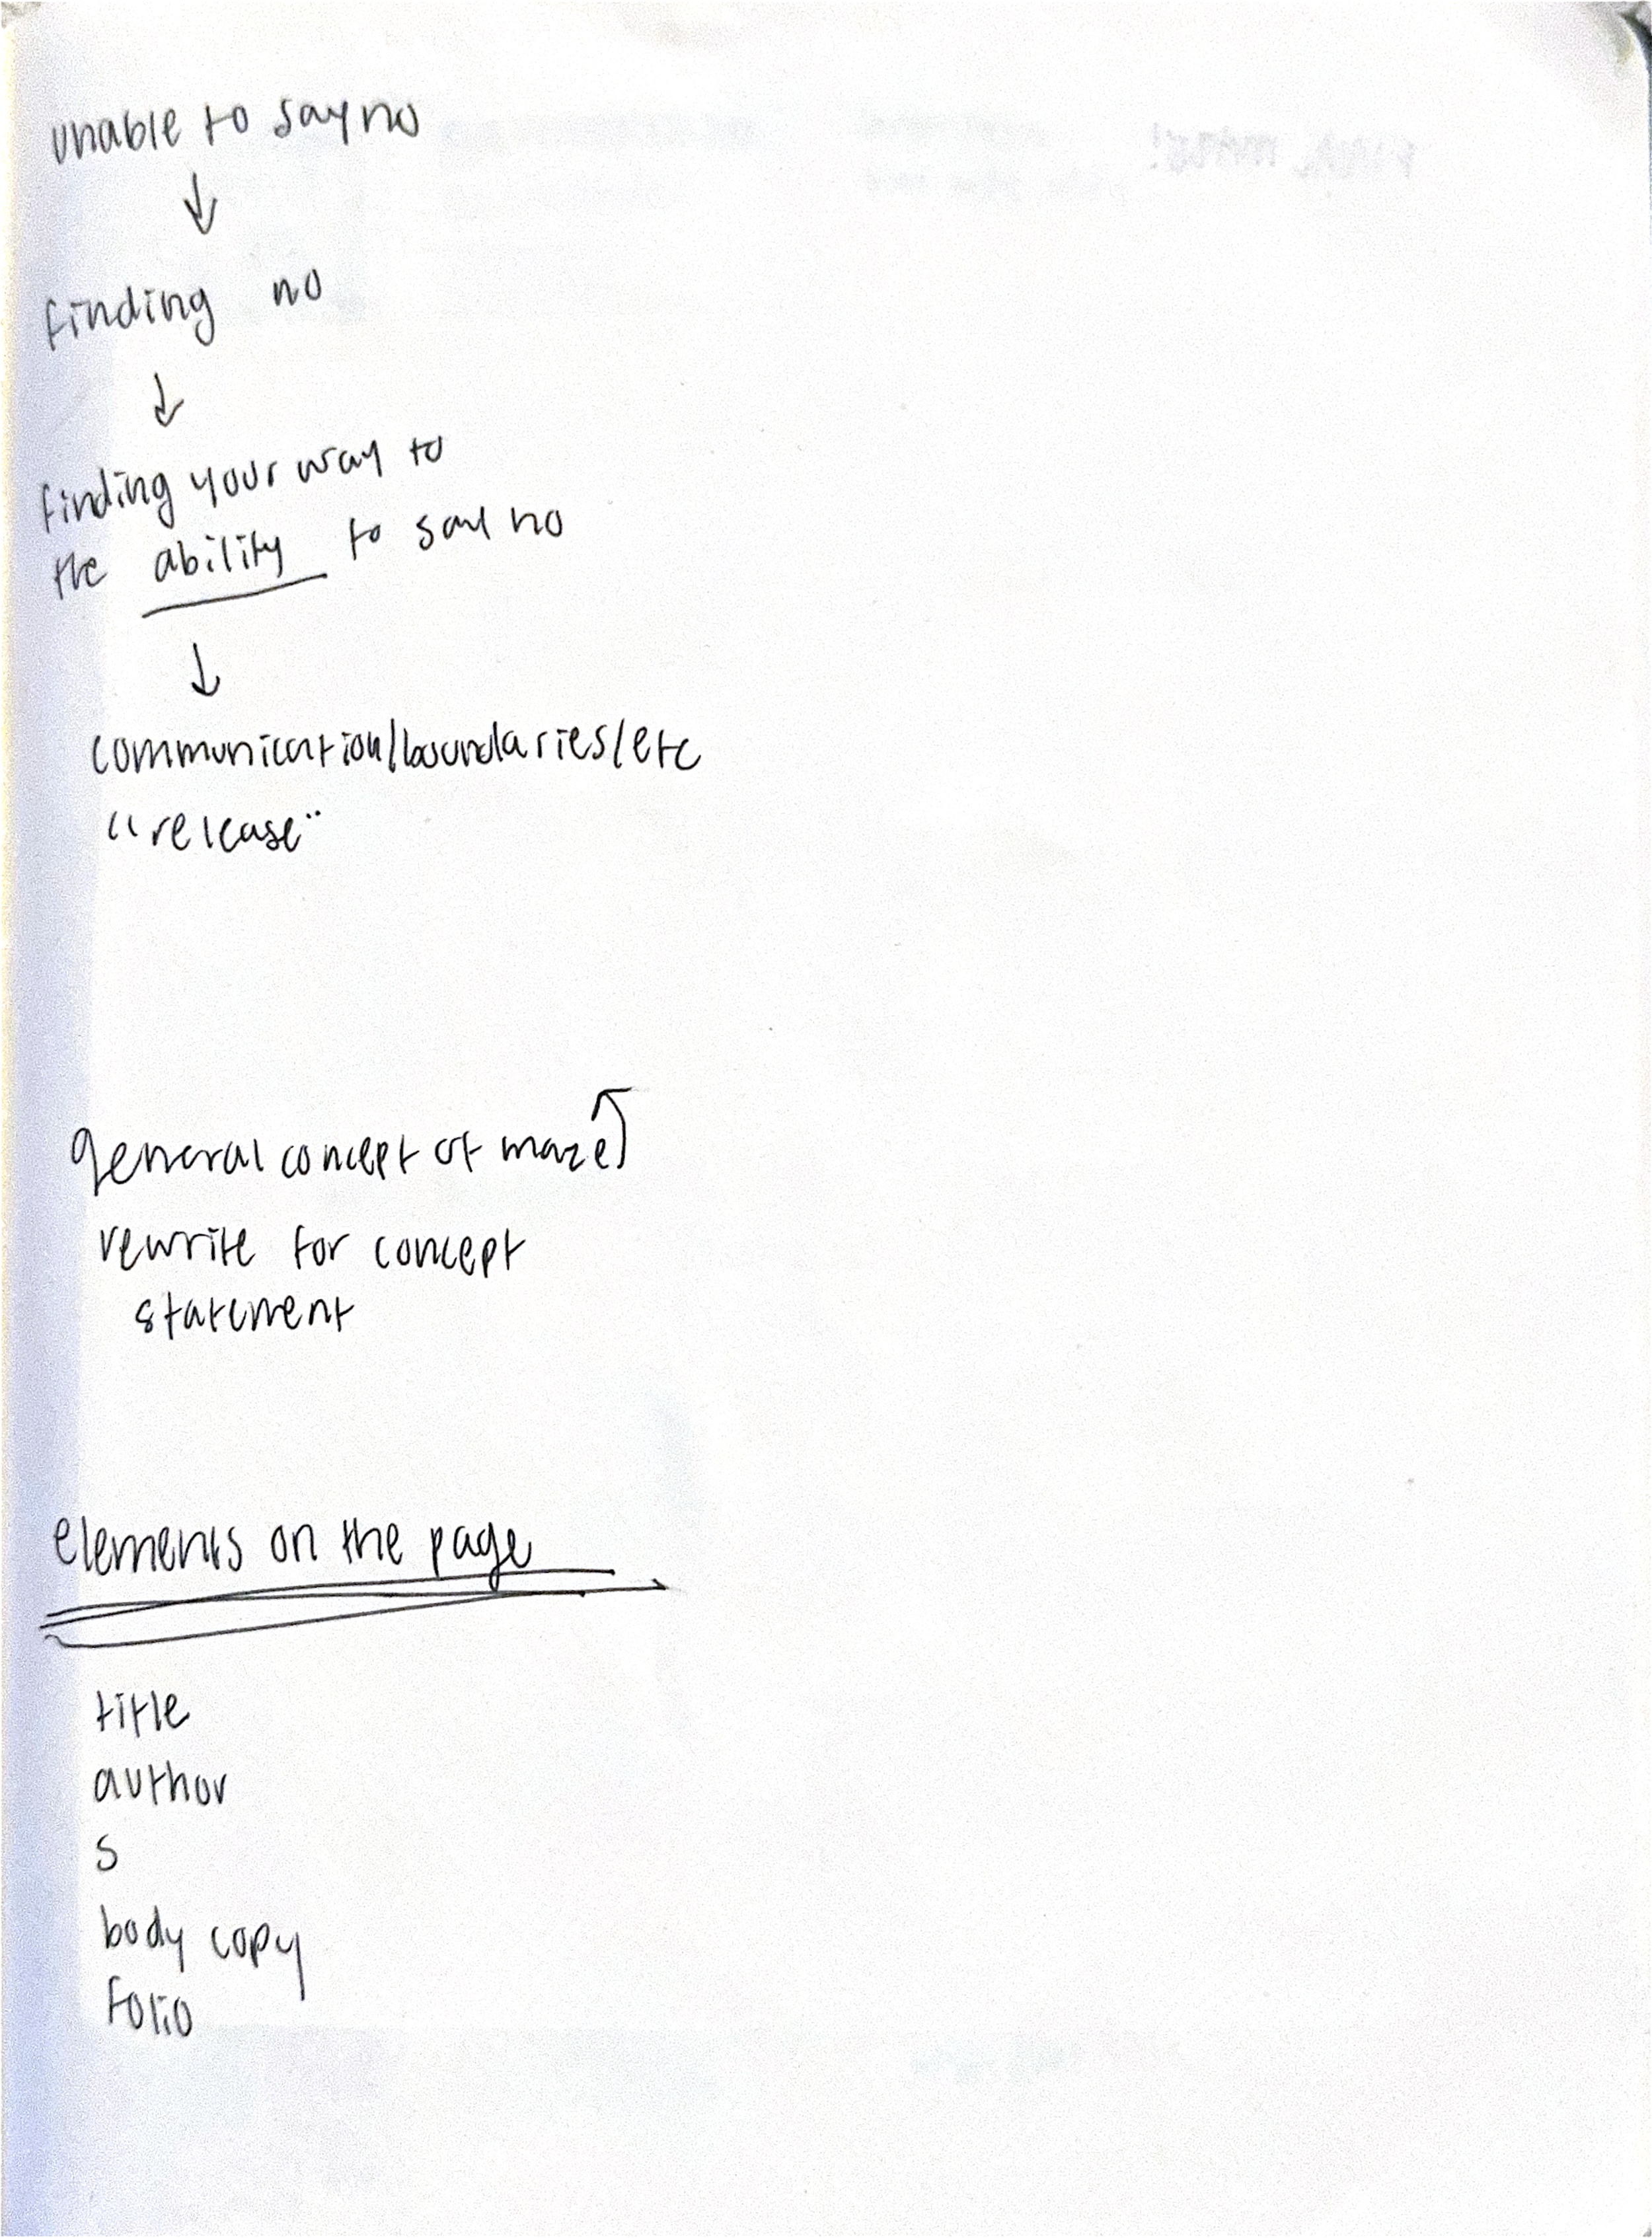 unable to say no
↓
finding no
↓
finding your way to
the ability to say no
↓
communication/boundaries/etc
"release"
general concept of maze
rewrite for concept
statement
elements on the page
title
author
s
body copy
folio